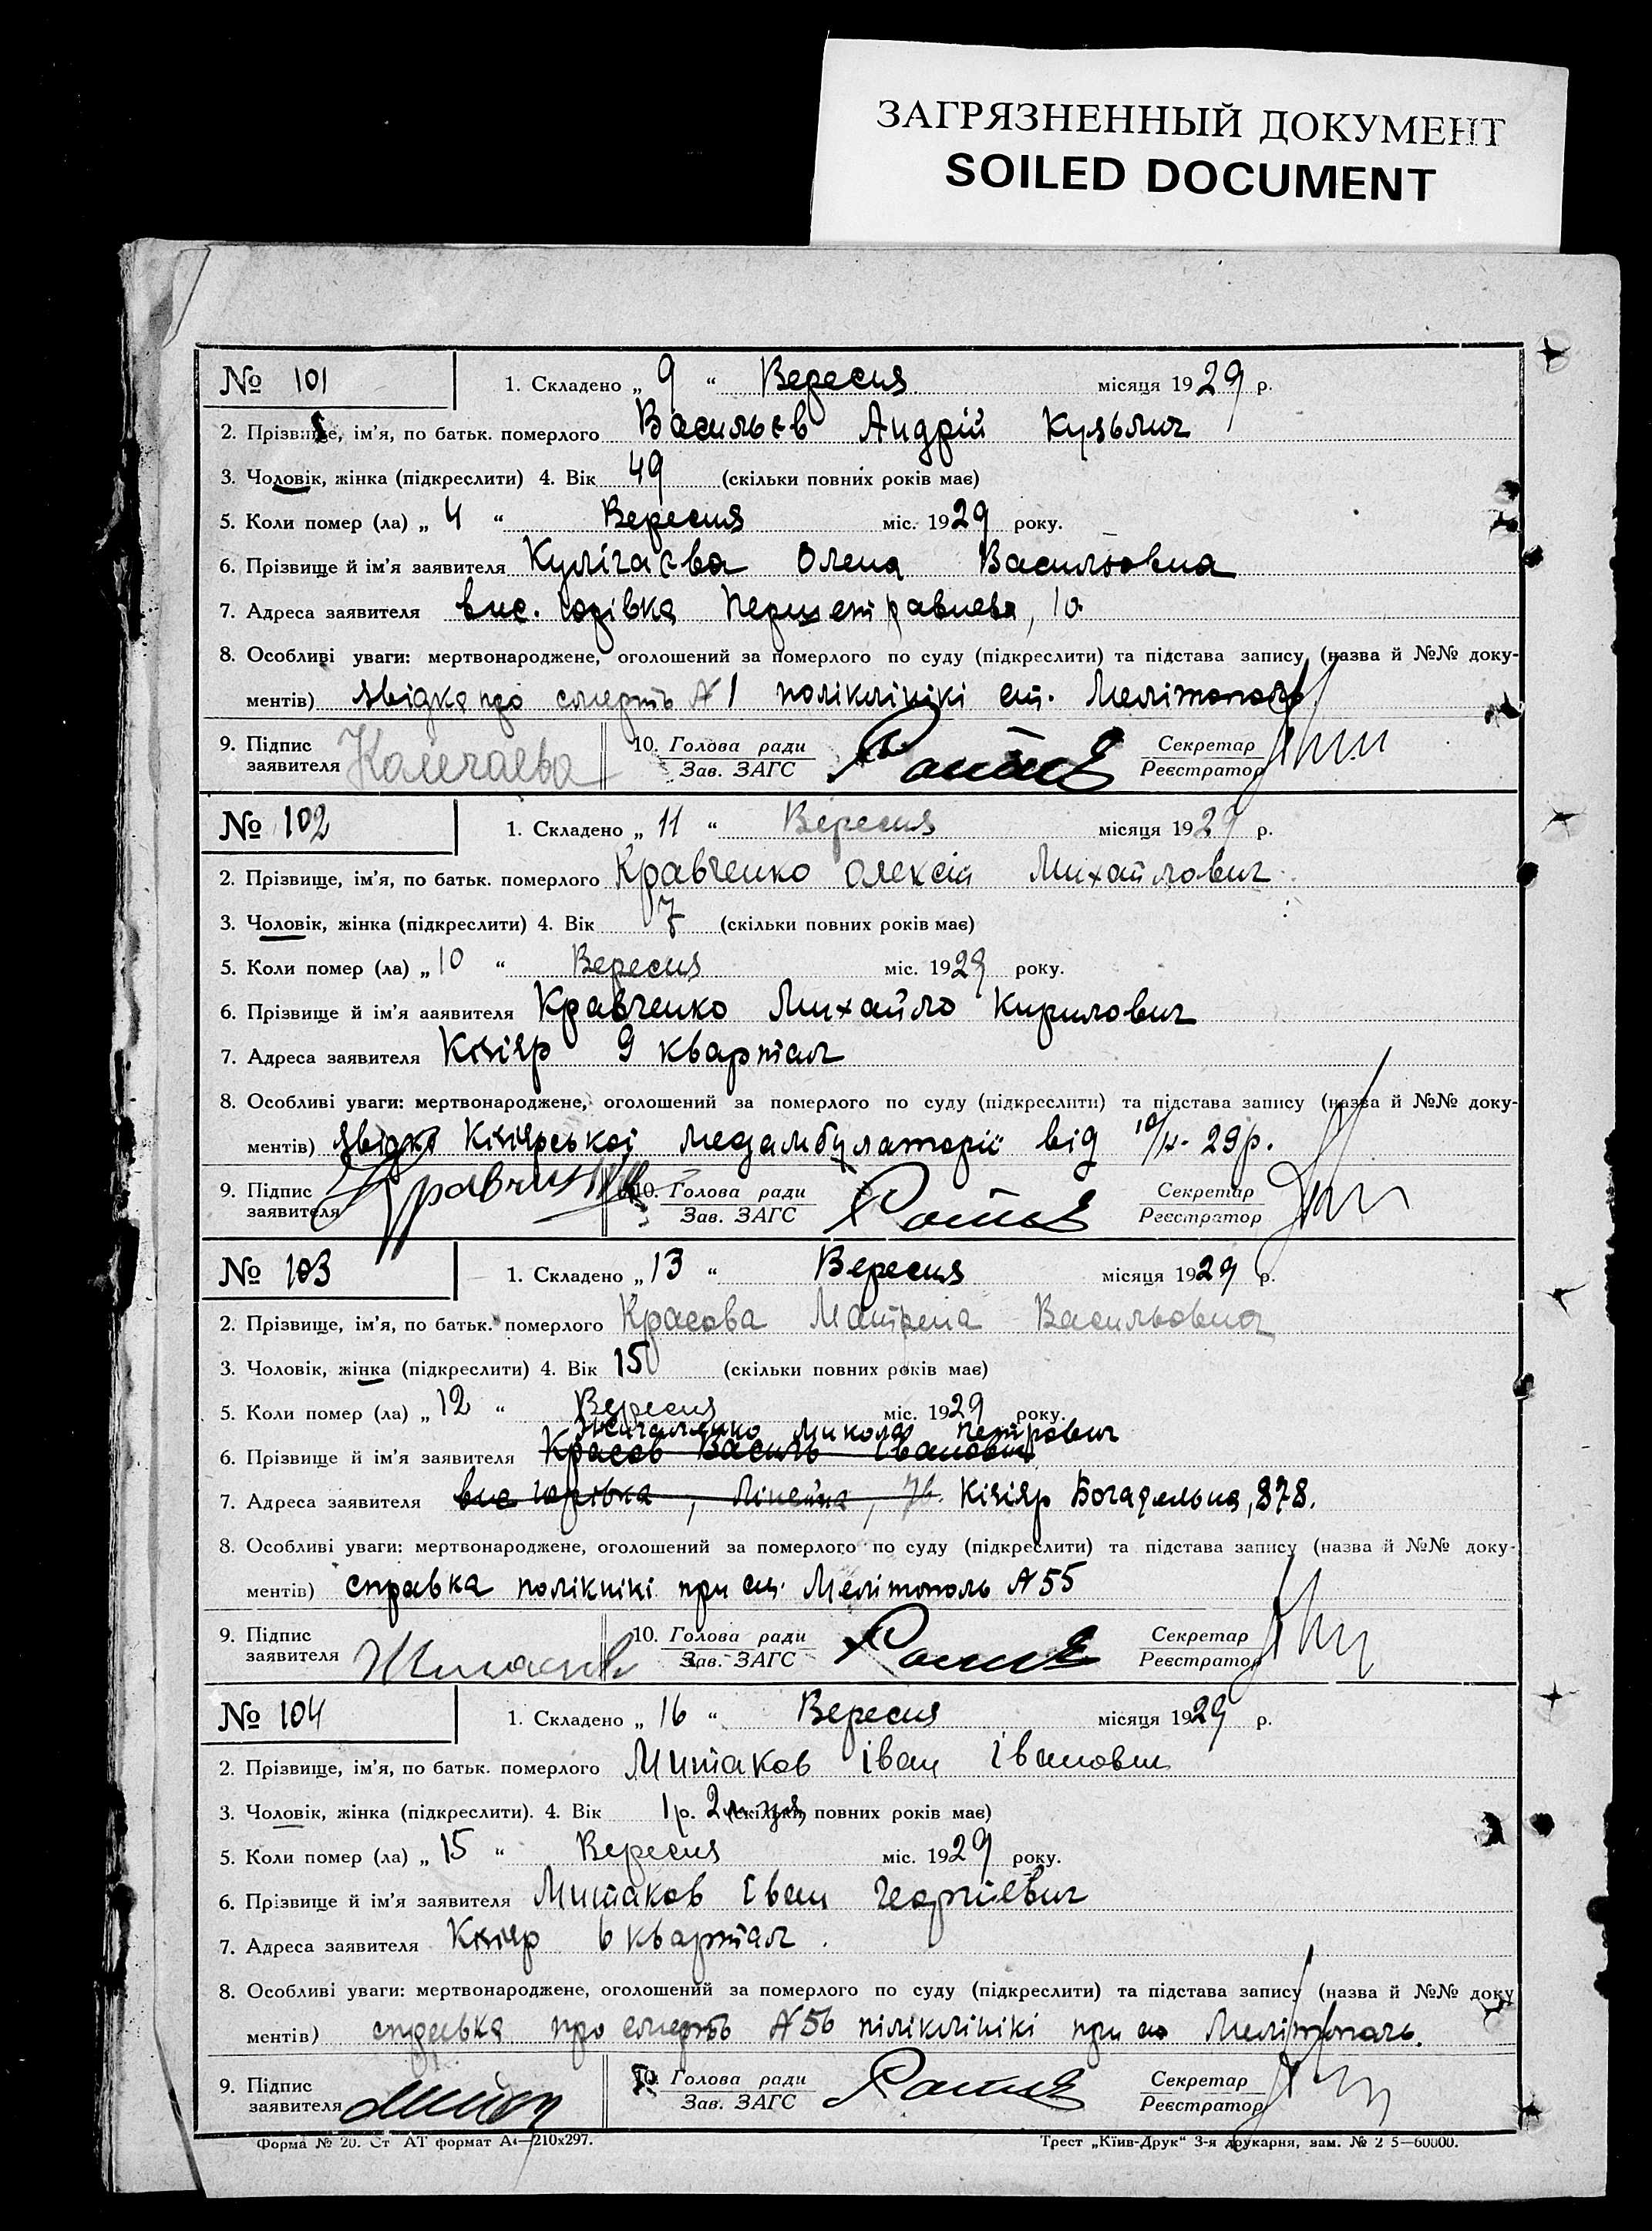 ЗАГРЯЗНЕННЫЙ ДОКУМЕНТ
SOILED DOCUMENT
№ 101 1. Складено „ 9 “ Вересня місяця 1929 р.
2. Прізвище, ім'я, по батьк. померлого Васильєв Андрій Кузьмич
3. Чоловік, жінка (підкреслити) 4. Вік 49 (скільки повних років має)
5. Коли помер (ла) „ 4 “ Вересня міс. 1929 року.
6. Прізвище й ім'я заявителя Кулігаєва Олена Васильовна
7. Адреса заявителя вис. Юрівка Першетравнева, 10
8. Особливі уваги: мертвонароджене, оголошений за померлого по суду (підкреслити) та підстава запису (назва й №№ доку-
ментів) звідка про смерть № 1 поліклінікі ст. Мелітополь
9. Підпис заявителя 10. Голова ради Зав. ЗАГС Секретар Реєстратор
№ 102 1. Складено „ 11 “ Вересня місяця 1929 р.
2. Прізвище, ім'я, по батьк. померлого Кравченко Олексій Михайлович
3. Чоловік, жінка (підкреслити) 4. Вік 7 (скільки повних років має)
5. Коли помер (ла) „ 10 “ Вересня міс. 1929 року.
6. Прізвище й ім'я заявителя Кравченко Михайло Кирилович
7. Адреса заявителя Кізіяр 9 квартал
8. Особливі уваги: мертвонароджене, оголошений за померлого по суду (підкреслити) та підстава запису (назва й №№ доку-
ментів) звідка Кізіярської медамбулаторії від 10/IX- 29р.
9. Підпис заявителя 10. Голова ради Зав. ЗАГС Секретар Реєстратор
№ 103 1. Складено „ 13 “ Вересня місяця 1929 р.
2. Прізвище, ім'я, по батьк. померлого Красова Мотрена Васильовна
3. Чоловік, жінка (підкреслити) 4. Вік 15 (скільки повних років має)
5. Коли помер (ла) „ 12 “ Вересня міс. 1929 року.
Микола Петрович
6. Прізвище й ім'я заявителя Красов Василь Іванович
7. Адреса заявителя вис Юрівка, Лінейна, 76. Кізіяр Богадельна, 878.
8. Особливі уваги: мертвонароджене, оголошений за померлого по суду (підкреслити) та підстава запису (назва й №№ доку-
ментів) справка полікнікі при ст. Мелітополь № 55
9. Підпис заявителя 10. Голова ради Зав. ЗАГС Секретар Реєстратор
№ 104 1. Складено „ 16 “ Вересня місяця 1929 р.
2. Прізвище, ім'я, по батьк. померлого Митаков Іван Іванович
3. Чоловік, жінка (підкреслити). 4. Вік 1р. 2 (скільки повних років має)
5. Коли помер (ла) „ 15 “ Вересня міс. 1929 року.
6. Прізвище й ім'я заявителя Митаков Іван Георгієвич
7. Адреса заявителя Кізіяр 6 квартал.
8. Особливі уваги: мертвонароджене, оголошений за померлого по суду (підкреслити) та підстава запису (назва й №№ доку
ментів) справка про смерть № 56 пілікліпікі при ст Мелітополь.
9. Підпис заявителя 10. Голова ради Зав. ЗАГС Секретар Реєстратор
Форма № 20. Ст АТ формат А4—210x297. Трест „Київ-Друк“ 3-я друкарня, зам. № 2 5—60000.